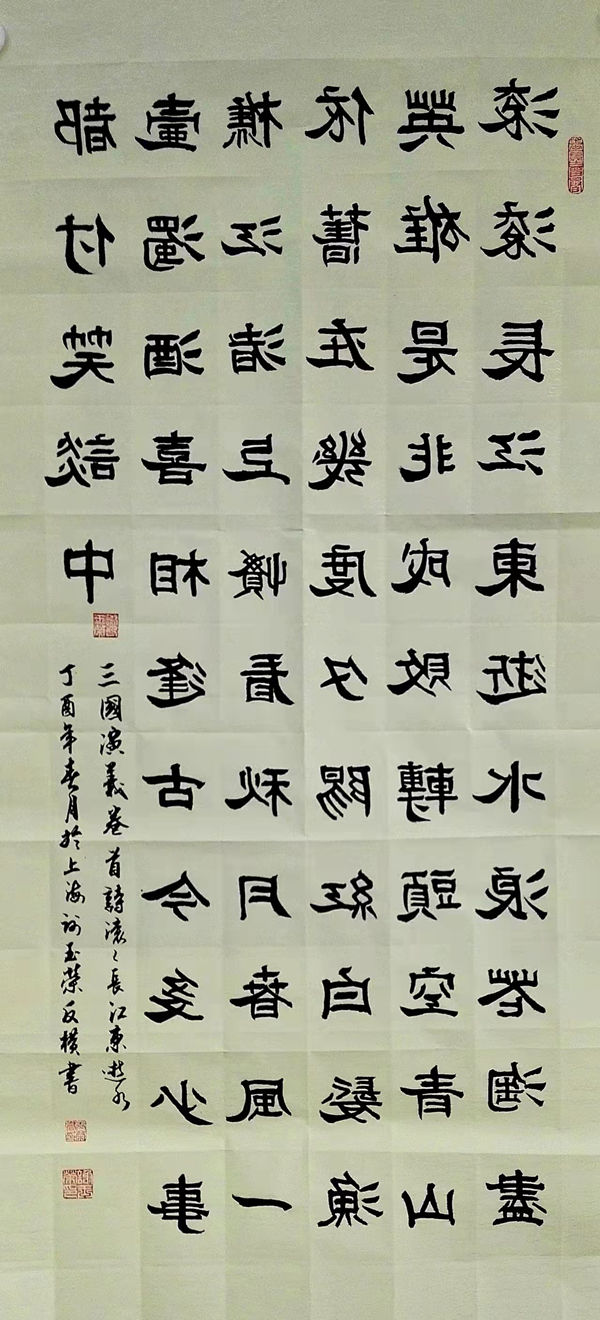 滾滾長江東逝水浪花淘盡
英雄是非成敗轉頭空青山
依舊在幾度夕陽紅白髮漁
樵江渚上慣看秋月春風一
壺濁酒喜相逢古今多少事
都付笑談中
三國演義卷首詩滾〻長江東逝水
丁酉年春月於上海玉榮反橫書